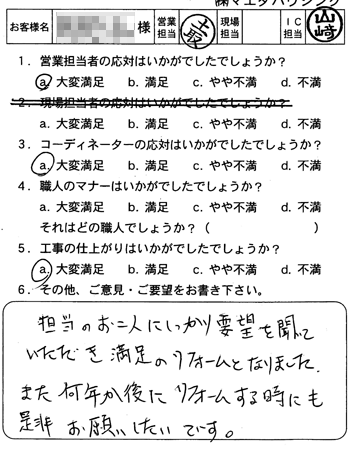 ㈱マエダハウジング
お客様名 様 営業担当 現場担当 IC担当 山﨑
1．営業担当者の応対はいかがでしたでしょうか？
a. 大変満足 b. 満足 c. やや不満 d. 不満
2．現場担当者の応対はいかがでしたでしょうか？
a. 大変満足 b. 満足 c. やや不満 d. 不満
3．コーディネーターの応対はいかがでしたでしょうか？
a. 大変満足 b. 満足 c. やや不満 d. 不満
4．職人のマナーはいかがでしたでしょうか？
a. 大変満足 b. 満足 c. やや不満 d. 不満
それはどの職人でしょうか？（ ）
5．工事の仕上がりはいかがでしたでしょうか？
a. 大変満足 b. 満足 c. やや不満 d. 不満
6．その他、ご意見・ご要望をお書き下さい。
担当のお二人にしっかり要望を聞いて
いただき満足のリフォームとなりました.
また何年か後にリフォームする時にも
是非お願いしたいです。